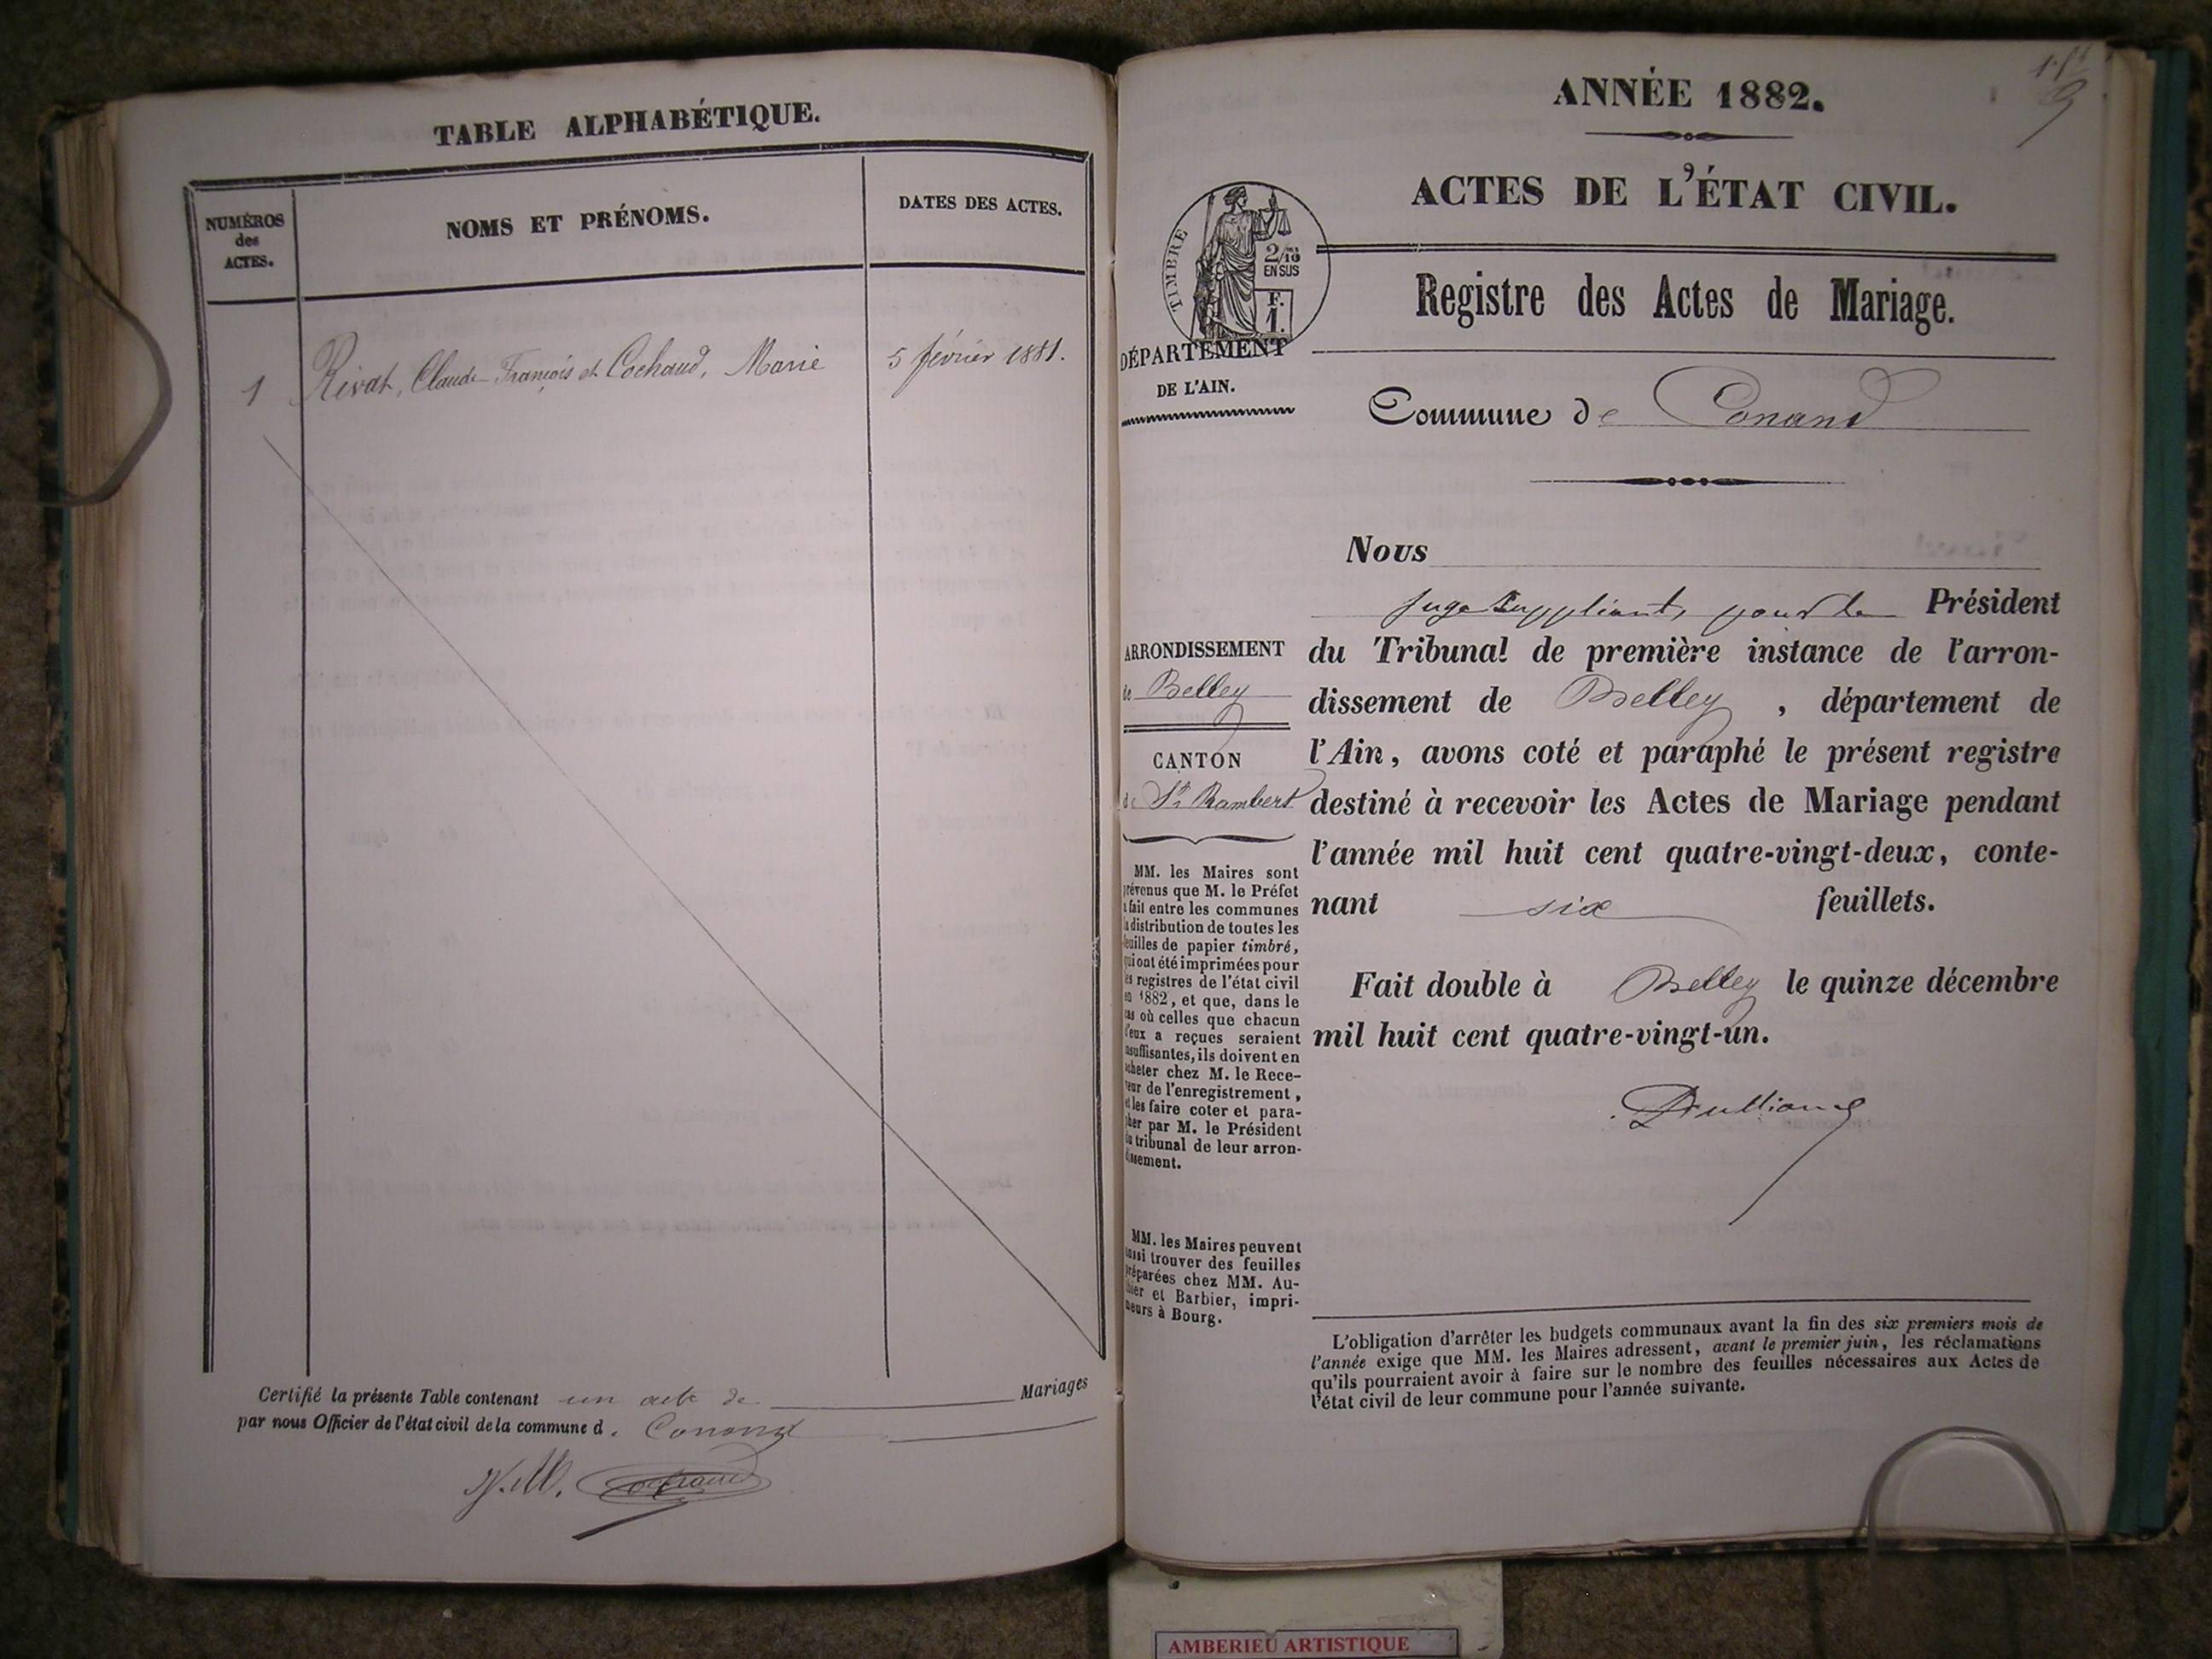 TABLE ALPHABÉTIQUE.
NUMÉROS
des
ACTES.
NOMS ET PRÉNOMS.
DATES DES ACTES.
1
Rivat, Claude François et Cochaud, Marie
5 février 1881.
Certifié la présente Table contenant un acte de Mariages
par nous Officier de l'état civil de la commune d. Conand
Cochaud
ANNÉE 1882.
ACTES DE L'ÉTAT CIVIL.
TIMBRE
2/10
EN SUS
F.
1.
Registre des Actes de Mariage.
DÉPARTEMENT
DE L'AIN.
Commune de Conand
Nous
Juge Suppléant, pour le Président
du Tribunal de première instance de l'arron-
dissement de Belley, département de
l'Ain, avons coté et paraphé le présent registre
destiné à recevoir les Actes de Mariage pendant
l'année mil huit cent quatre-vingt-deux, conte-
nant six feuillets.
Fait double à Belley le quinze décembre
mil huit cent quatre-vingt-un.
ARRONDISSEMENT
de Belley
CANTON
de St Rambert
MM. les Maires sont
prévenus que M. le Préfet
a fait entre les communes
la distribution de toutes les
feuilles de papier timbré,
qui ont été imprimées pour
les registres de l'état civil
en 1882, et que, dans le
cas où celles que chacun
d'eux a reçues seraient
insuffisantes, ils doivent en
acheter chez M. le Rece-
veur de l'enregistrement,
et les faire coter et para-
pher par M. le Président
du tribunal de leur arron-
dissement.
MM. les Maires peuvent
aussi trouver des feuilles
préparées chez MM. Au-
thier et Barbier, impri-
meurs à Bourg.
L'obligation d'arrêter les budgets communaux avant la fin des six premiers mois de
l'année exige que MM. les Maires adressent, avant le premier juin, les réclamations
qu'ils pourraient avoir à faire sur le nombre des feuilles nécessaires aux Actes de
l'état civil de leur commune pour l'année suivante.
AMBERIEU ARTISTIQUE